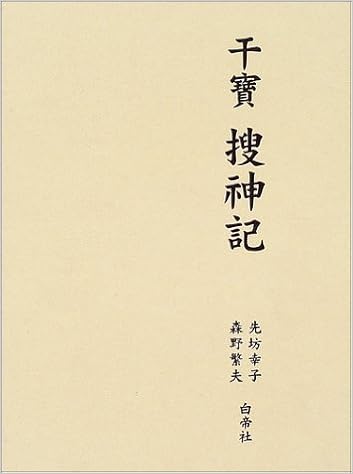 干寶 搜神記
先坊幸子
森野繁夫
白帝社